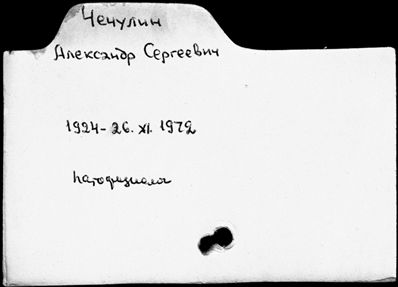 Чечулин
Александр Сергеевич
1924-26.XI.1972
патофизиолог